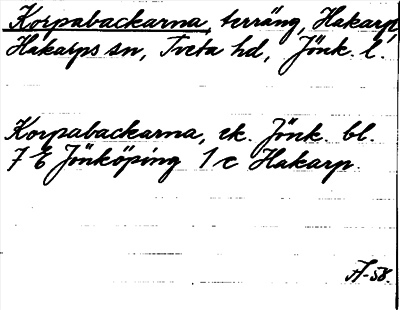 Korpabackarna, terräng, Hakarp,
Hakarps sn, Tveta hd, Jönk. l.
Korpabackarna, ek. Jönk. bl.
7 E Jönköping 1 c Hakarp.
A-58.